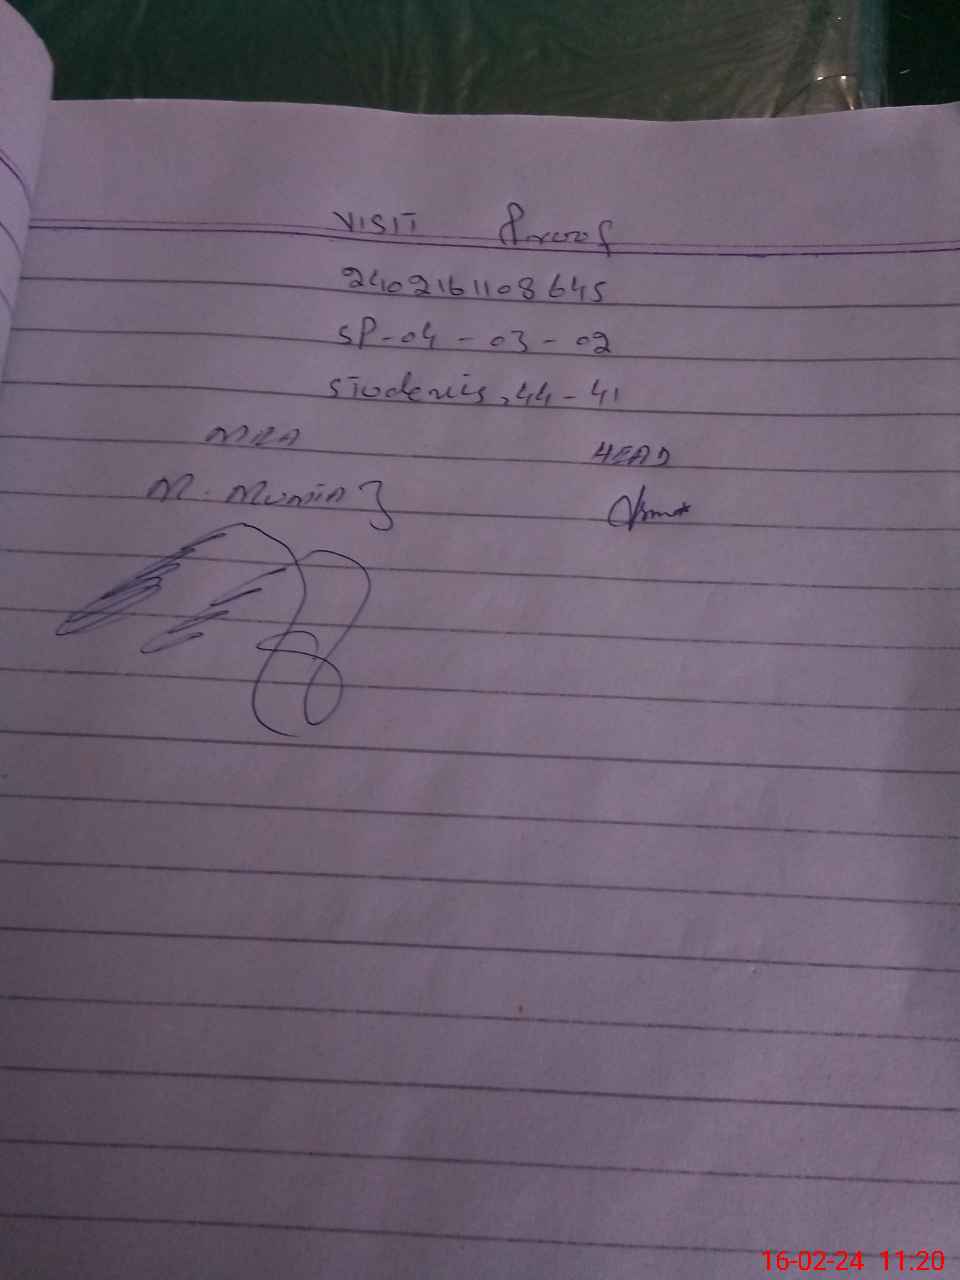 VISIT Proof
2402161108645
SP-04-03-02
Students, 44-41
MEA HEAD
M. Munir
16-02-24 11:20